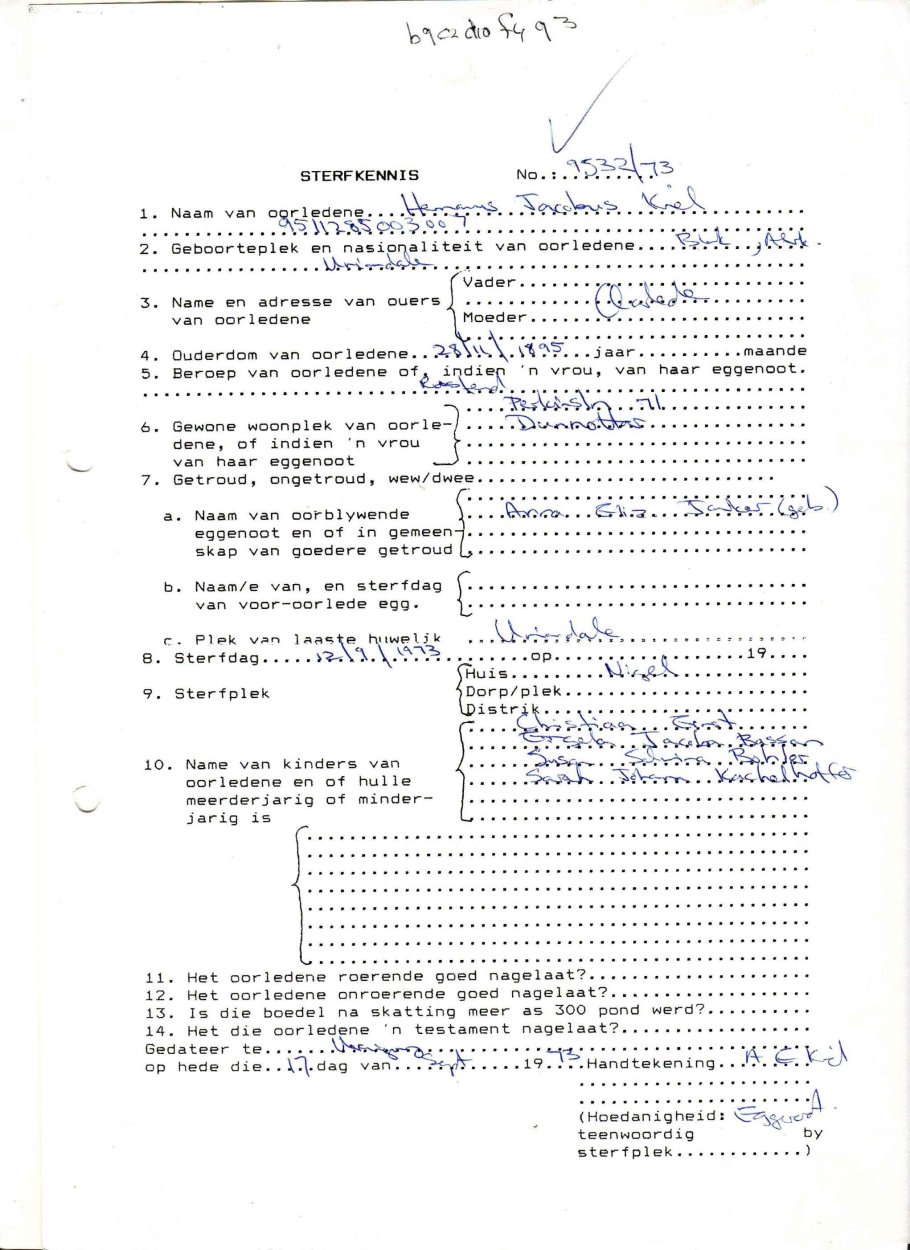 b9c2d10f4 93
STERFKENNIS No.: 9532/73
1. Naam van oorledene.... Hermanus Jacobus Kiel
9511285003007
2. Geboorteplek en nasionaliteit van oorledene.... Blank, Afrik.
Uniondale
Vader
3. Name en adresse van ouers
van oorledene
Moeder
4. Ouderdom van oorledene.. 28/11/1895 ...jaar..........maande
5. Beroep van oorledene of, indien 'n vrou, van haar eggenoot.
Rustend
Perkinsstr 71
6. Gewone woonplek van oorle- Dunnottar
dene, of indien 'n vrou
van haar eggenoot
7. Getroud, ongetroud, wew/dwee
a. Naam van oorblywende Anna Eliz Jonker (geb.)
eggenoot en of in gemeen-
skap van goedere getroud
b. Naam/e van, en sterfdag
van voor-oorlede egg.
c. Plek van laaste huwelik ... Uniondale
8. Sterfdag..... 12/9/1973 ........op....................19....
Huis.......... Nigel
9. Sterfplek Dorp/plek
Distrik
Christiaan Ernst
Jacoba Bassan
10. Name van kinders van Susan Selvira Botler
oorledene en of hulle Sarah Johanna Kachelhoffer
meerderjarig of minder-
jarig is
11. Het oorledene roerende goed nagelaat?
12. Het oorledene onroerende goed nagelaat?
13. Is die boedel na skatting meer as 300 pond werd?
14. Het die oorledene 'n testament nagelaat?
Gedateer te
op hede die.. 17. dag van.... Sept .....19 73 ...Handtekening... A E Kiel
(Hoedanigheid: Eggenoot
teenwoordig by
sterfplek............)